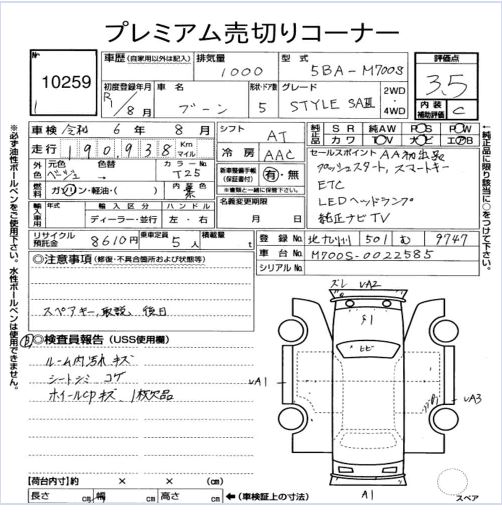 プレミアム売切りコーナー
No
10259
車歴(自家用以外は記入) 排気量 1000 型式 5BA-M700S
評価点 3.5
内装補助評価 C
初度登録年月 R1/8月 車名 ブーン 形状・ドア数 5 グレード STYLE SAⅢ 2WD・4WD
車検 令和 6年 8月 シフト AT
純正品 SR 純AW PS PW
カワ TV ナビ エアB
走行 190,938 Km マイル 冷房 AAC
外色 元色 ベージュ 色替→ カラーNo T25
新車整備手帳(保証書付) 有・無
※書類と一緒に保管下さい。
セールスポイント AA初出品
プッシュスタート, スマートキー
ETC
LEDヘッドランプ
純正ナビTV
燃料 ガソリン・軽油・( ) 内装 黒
名義変更期限 月 日
輸入車用 年式 輸入区分 ハンドル
ディーラー・並行 左・右
リサイクル預託金 8610円 乗車定員 5人 積載量 t
登録No. 北九州 501 む 9747
車台No. M700S-0022585
シリアルNo.
◎注意事項(修復・不具合箇所および状態等)
スペアキー, 取説, 後日
◎検査員報告(USS使用欄)
ルーム内汚れ キズ
シートシミ コゲ
ホイールCPキズ, 1枚欠品
ズレ UA2
ヒビ
UA1
UA3
A1
スペア
【荷台内寸】約 × × cm
長さ cm 幅 cm 高さ cm ←(車検証上の寸法)
※必ず油性ボールペンをご使用下さい。水性ボールペンは使用できません。
←純正品に限り装備品に○をつけて下さい。